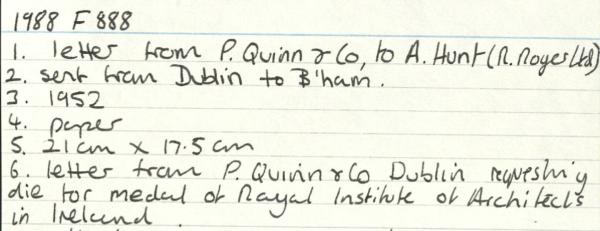 1988 F 888
1. letter from P. Quinn & Co, to A. Hunt (R. Royes Ltd)
2. sent from Dublin to B'ham.
3. 1952
4. paper
5. 21cm x 17.5 cm
6. letter from P. Quinn & Co Dublin requesting
die for medal of Royal Institute of Architects
in Ireland.